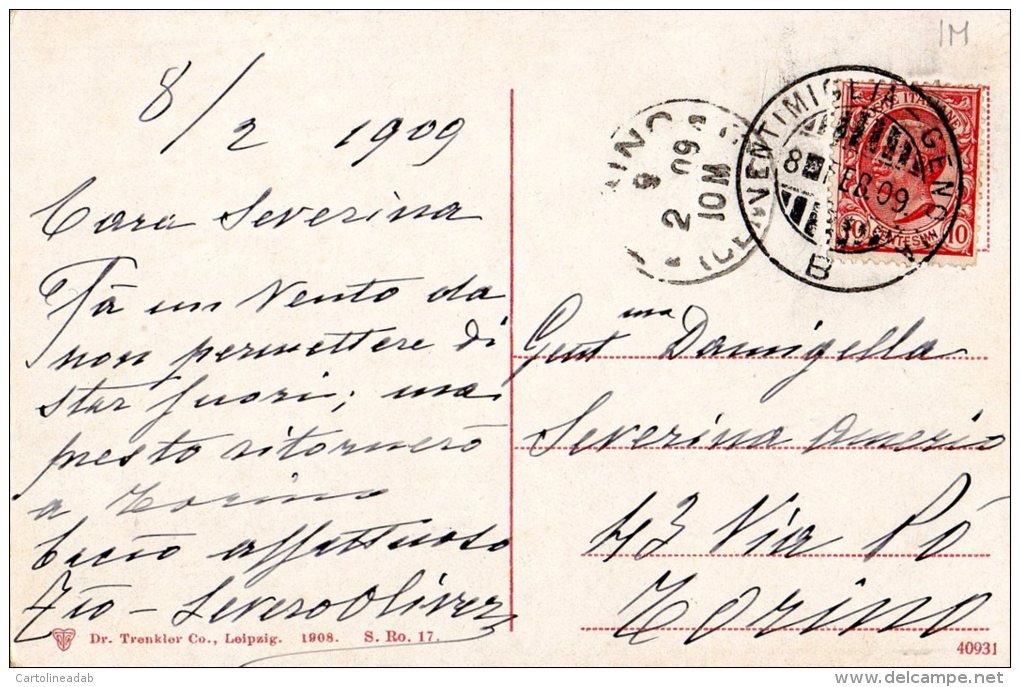 1M
8/2 1909
Cara Severina
Fà un Vento da
non permettere di
star fuori; ma
presto ritornerò
a Torino
bacio affettuoso
Zio - Severo Oliver
Dr. Trenkler Co., Leipzig. 1908. S. Ro. 17.
INO
9
2 09
10M
VENTIMIGLIA - GENOVA
8 FEB. 09.
B
10 CENTESIMI 10
Gent ma Damigella
Severina Amerio
43 Via Pó
Torino
40931
Cartolineadab
delcampe.net